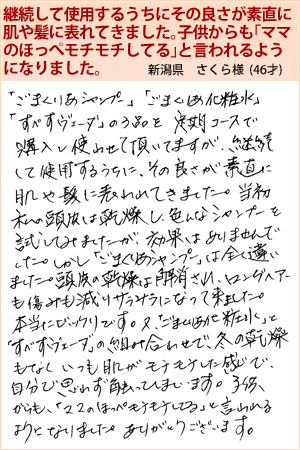 継続して使用するうちにその良さが素直に
肌や髪に表れてきました。子供からも「ママ
のほっぺモチモチしてる」と言われるよう
になりました。
新潟県　さくら様 (46才)
「ごまくりぁシャンプー」「ごまくりぁ化粧水」
「すべすヴェーダ」の3品を 定期コースで
購入し使わせて頂いてますが、継続
して使用するうちに、その良さが素直に
肌や髪に表われてきました。当初
私の頭皮は乾燥し、色んなシャンプーを
試してみましたが、効果はありませんで
した。しかし「ごまくりぁシャンプー」は全く違い
ました。頭皮の乾燥は解消され、ロングヘアー
も傷みも減りサラサラになって来ました。
本当にビックリです。又、「ごまくりぁ化粧水」と
「すべすヴェーダ」の組み合わせで、冬の乾燥
もなく いつも肌がモチモチした感じで、
自分で思わず触ってしまいます。子供
からも、「ママのほっぺモチモチしてる」と言われる
ようになりました。ありがとうございます。